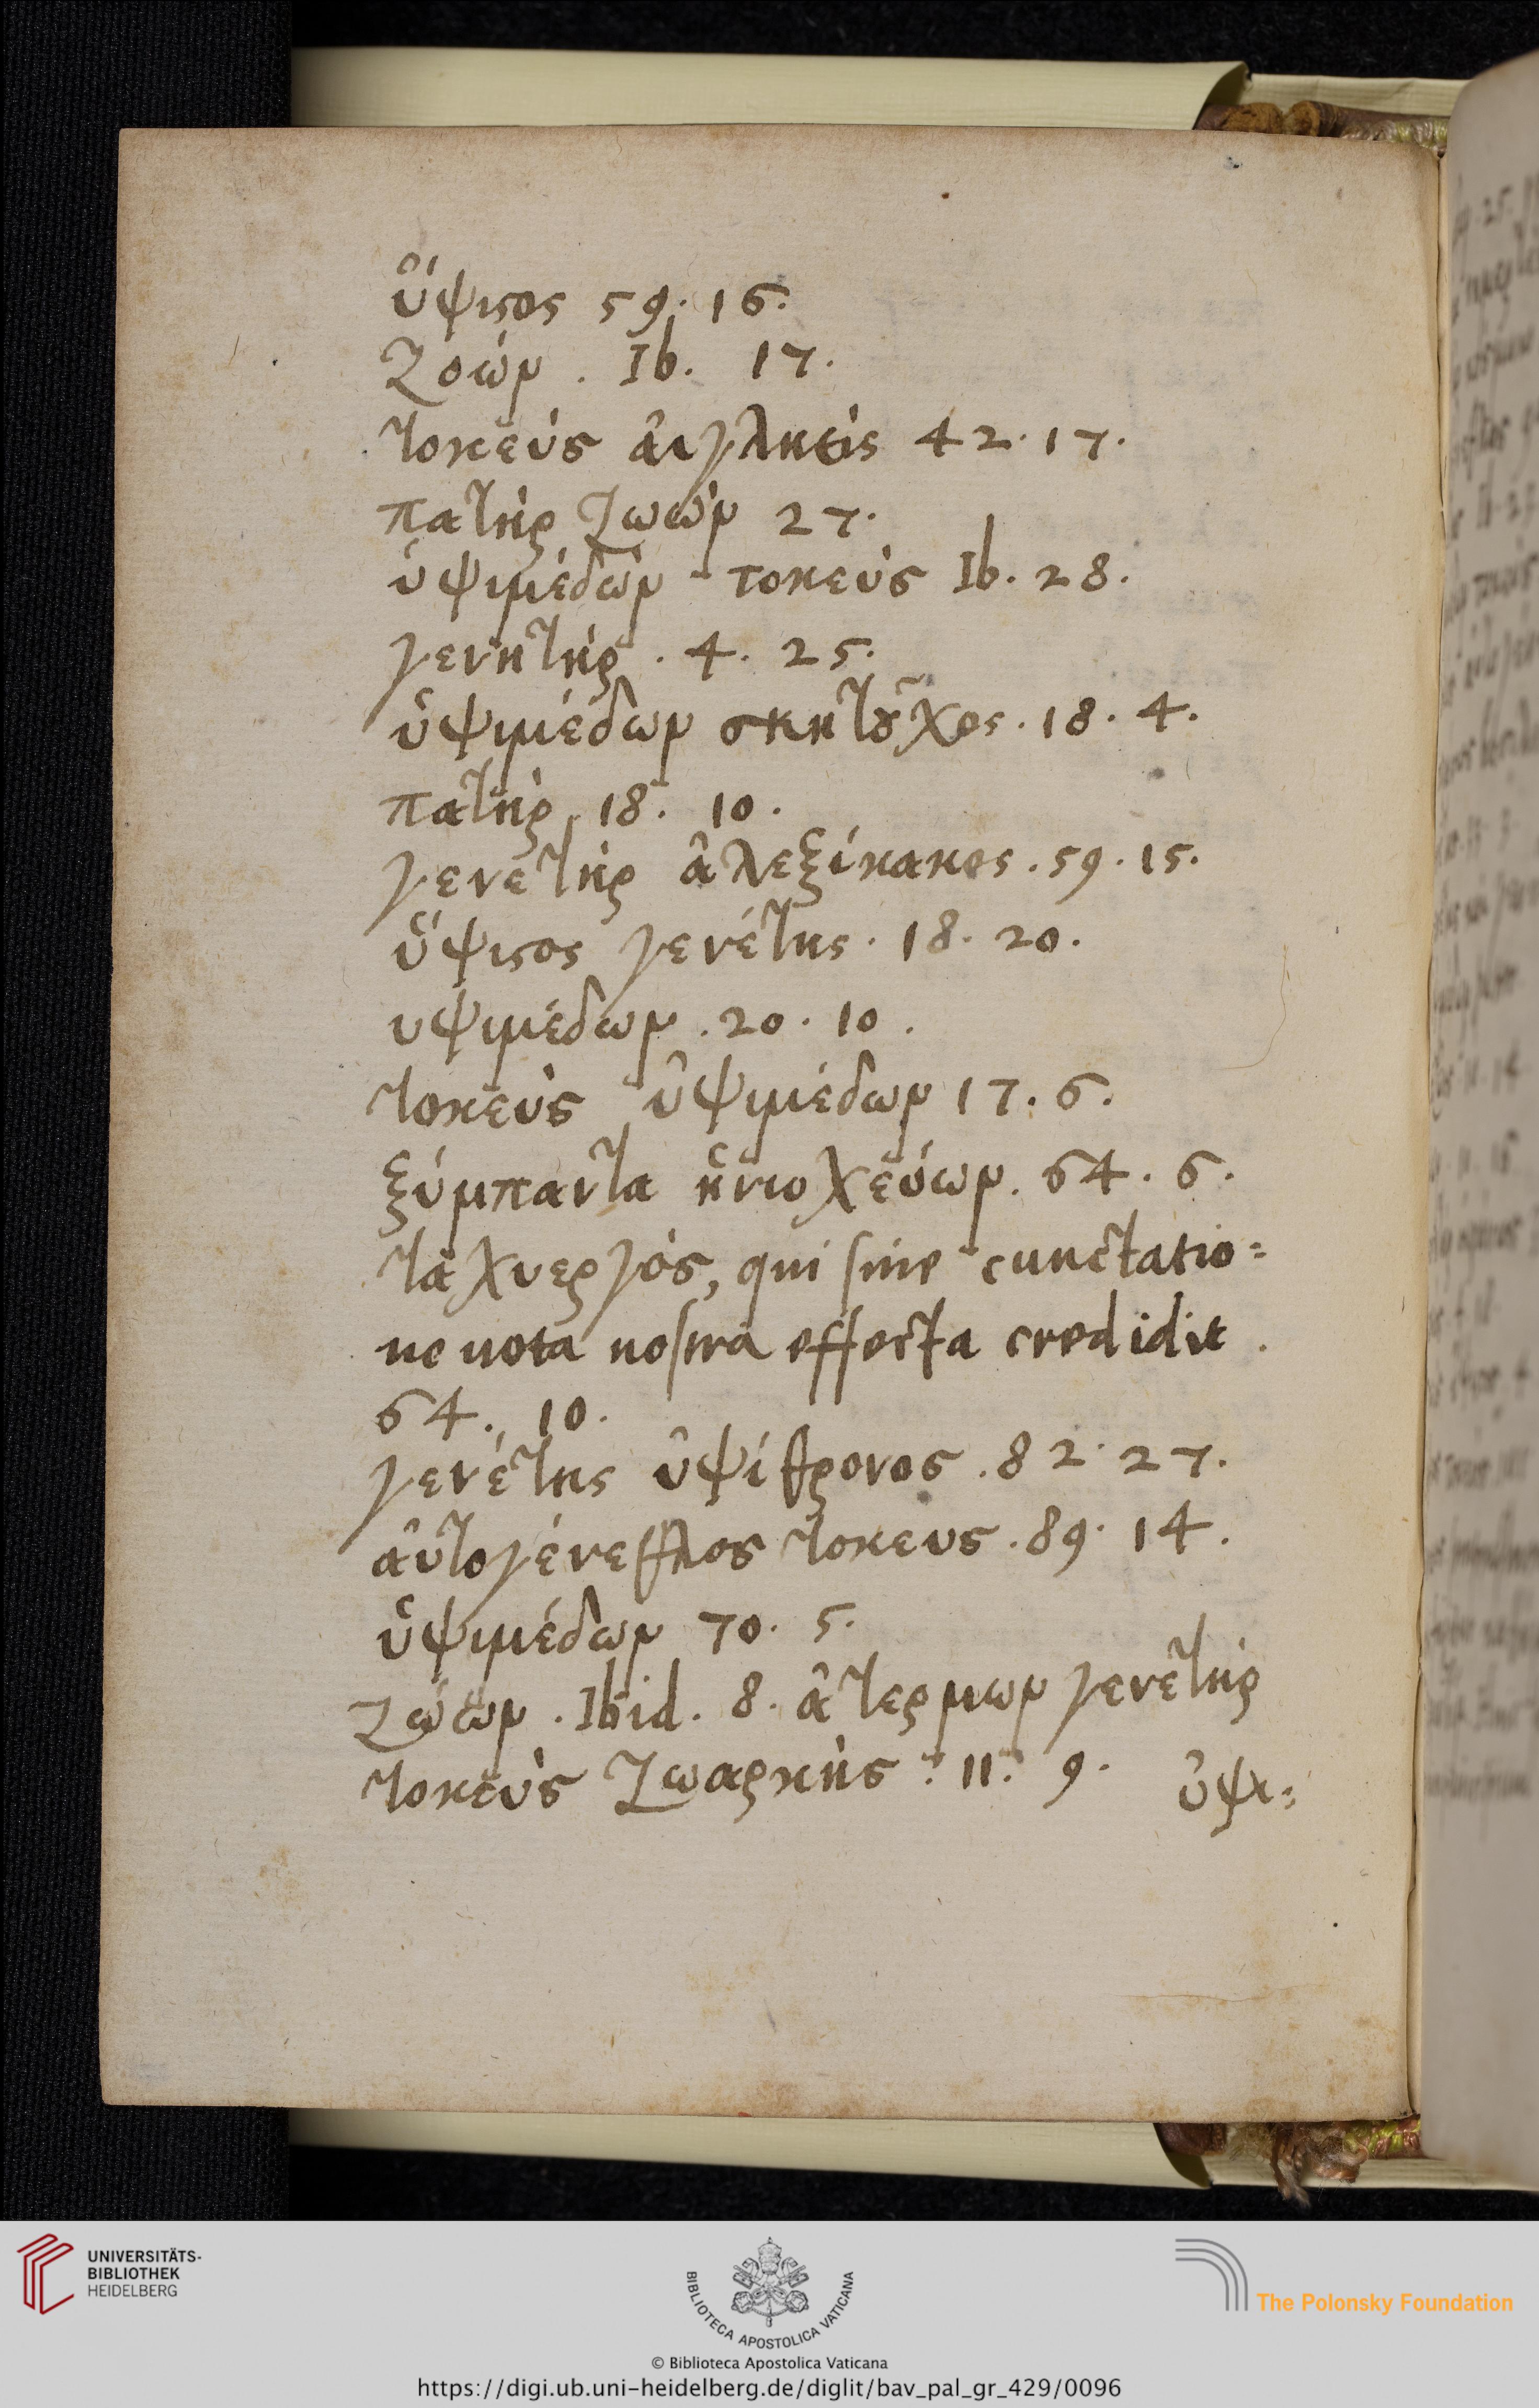 ὕψιϛος 59. 16.
Ζοών. Ib. 17.
τοκεὺς ἀιγλκεὶς 42. 17.
πατὴρ Ζωών 27.
ὑψιμέδων τοκεύς Ib. 28.
γενητήρ. 4. 25.
ὑψιμέδων σκητȣ͂χος. 18. 4.
πατὴρ 18. 10.
γενετὴρ ἀλεξίκακος. 59. 15.
ὕψιϛος γενέτης. 18. 20.
υψιμέδων. 20. 10.
τοκεὺς ὑψιμέδων 17. 6.
ξύμπαντα ἡνιοχεύων. 64. 6.
ταχυεργός, qui sine cunctatio=
ne uota nostra effecta credidit.
64. 10.
γενέτης ὑψίθρονος. 82. 27.
αὐτογένεθλος τοκευς. 89. 14.
ὑψιμέδων 70. 5.
Ζώων. Ibid. 8. ἀτερμων γενετὴρ
τοκεὺς Ζωαρκής: 11. 9. ὑψι=
UNIVERSITÄTS-
BIBLIOTHEK
HEIDELBERG
BIBLIOTECA APOSTOLICA VATICANA
The Polonsky Foundation
© Biblioteca Apostolica Vaticana
https://digi.ub.uni-heidelberg.de/diglit/bav_pal_gr_429/0096